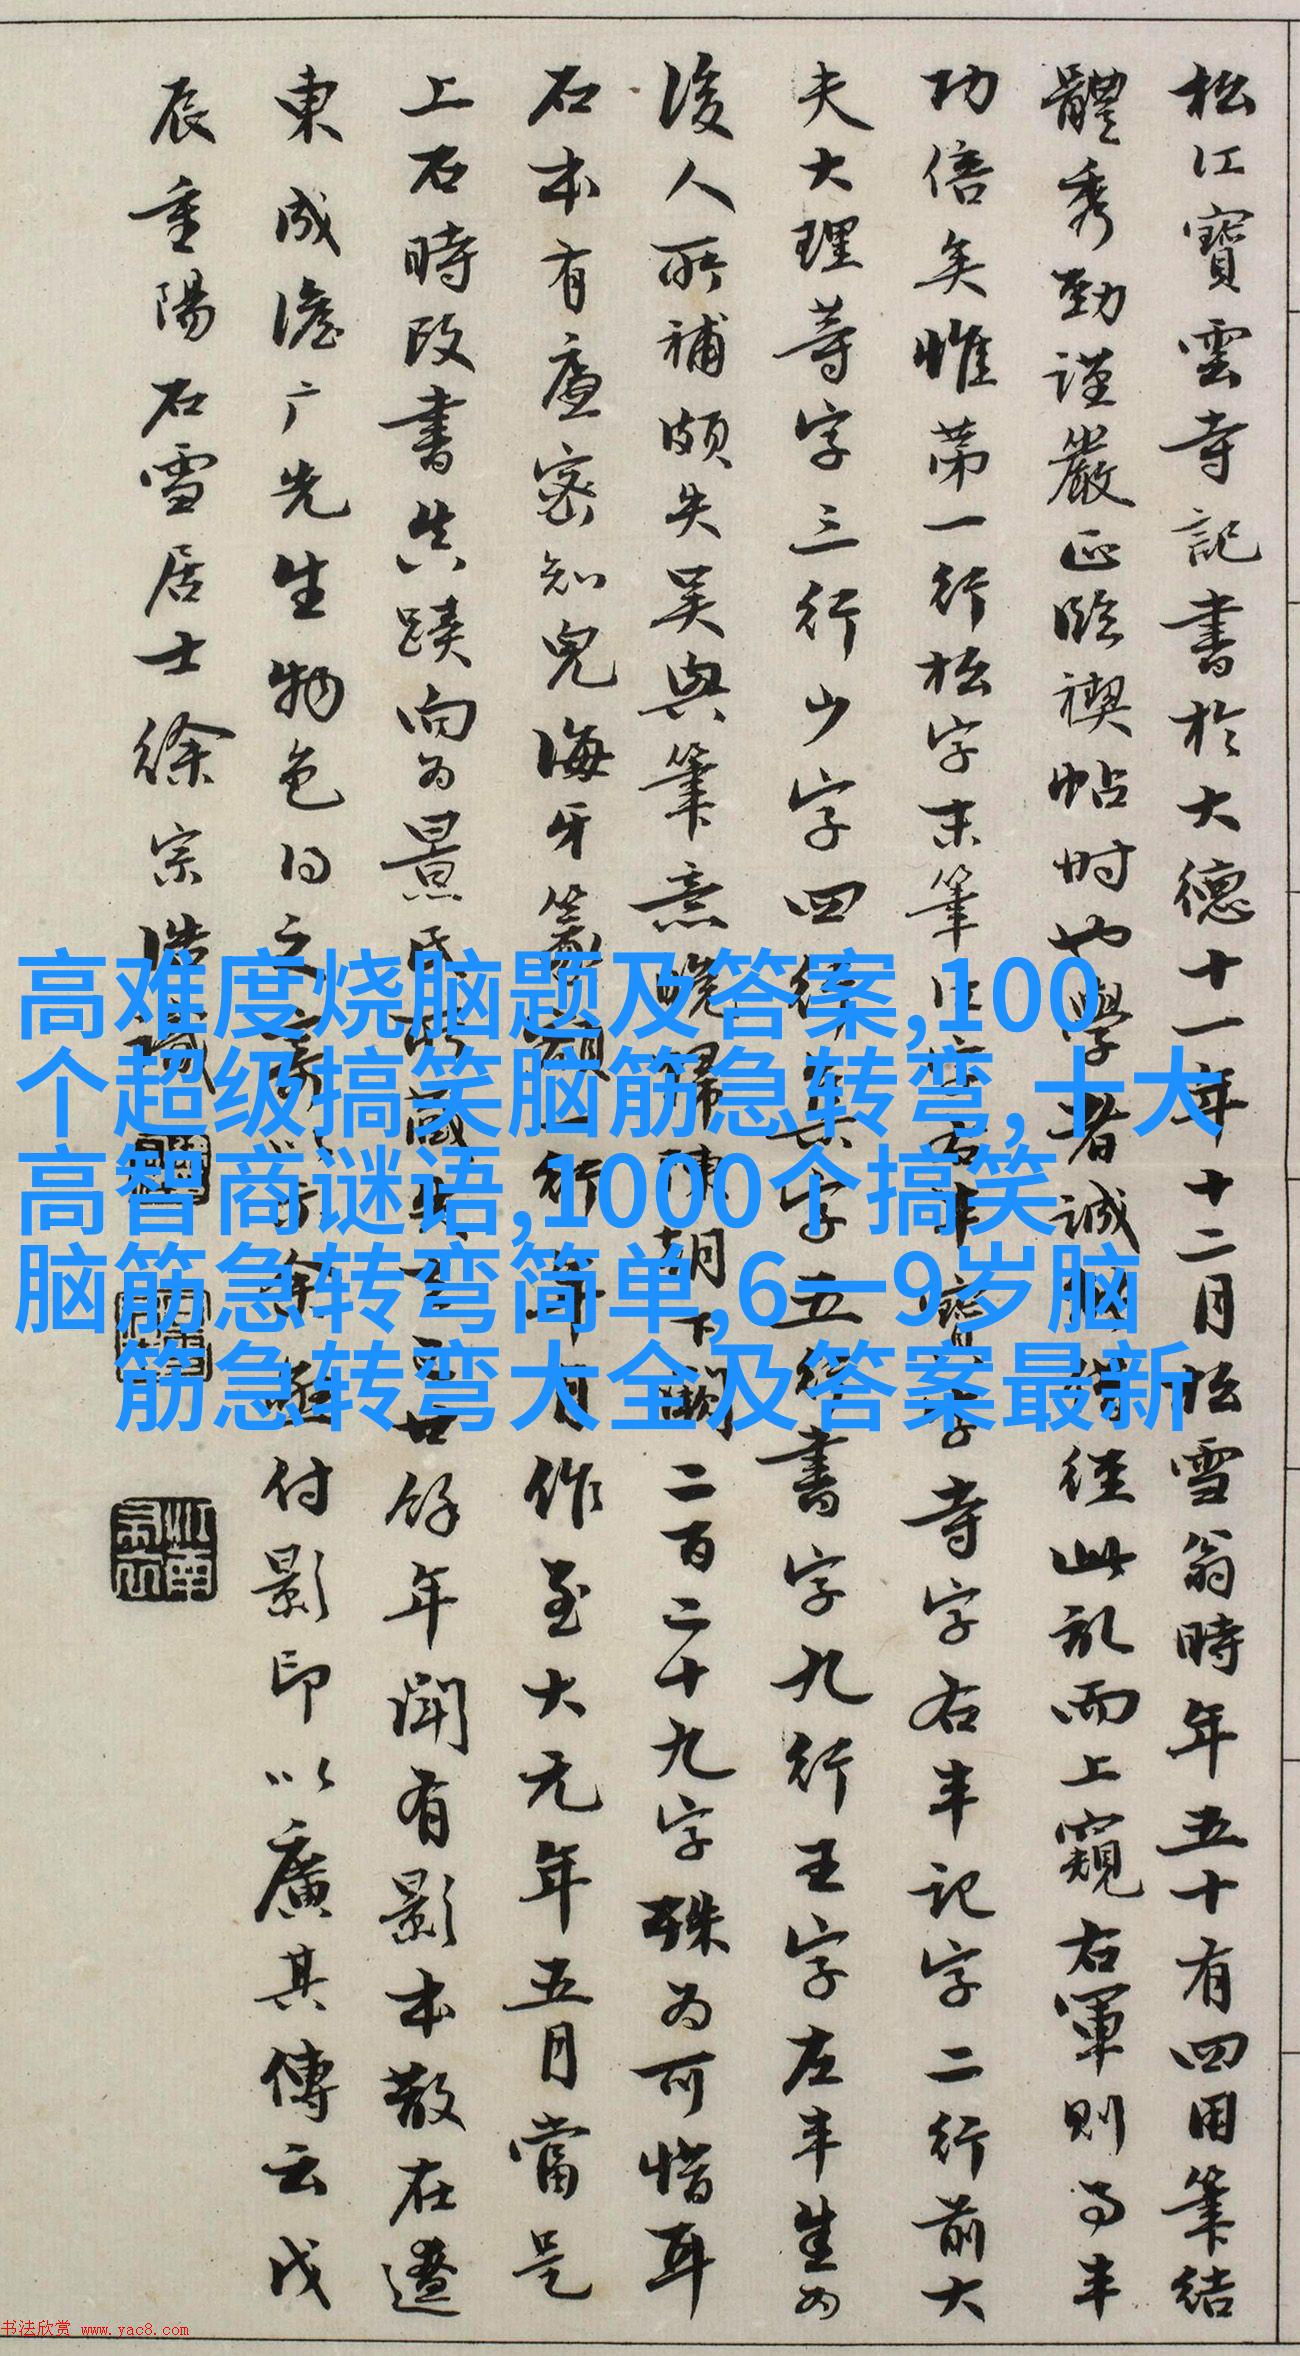 松江寶雲寺記書於大德十一年十二月松雪翁時年五十有四用筆結
體秀勁謹嚴正臨禊帖時也學者誠能從此祝而上窺右軍則事半
功倍矣惟第一行松字末筆寺字右半記字二行前大
夫大理等字三行少字四行字五行書字九行王字左半生為
後人所補頗失吴興筆意晚歸陳朝下闕二百二十九字殊為可惜耳
石本有盧密知兒海牙篆額一行年月作至大元年五月當是
上石時改書真蹟向為景氏所藏廿餘年聞有影本散在遼
東成澹广先生物色得之付影印以廣其傳云戊
辰重陽石雪居士徐宗浩識
高难度烧脑题及答案,100
个超级搞笑脑筋急转弯,十大
高智商谜语,1000个搞笑
脑筋急转弯简单,6一9岁脑
筋急转弯大全及答案最新
书法欣赏 www.yac8.com